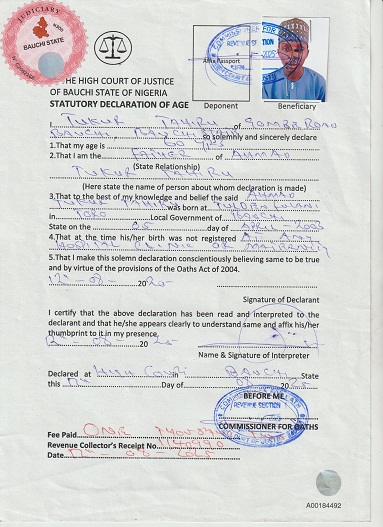 JUDICIARY
BAUCHI STATE
THE HIGH COURT OF JUSTICE
OF BAUCHI STATE OF NIGERIA
STATUTORY DECLARATION OF AGE
Affix Passport
REVENUE SECTION
2025
Deponent
Beneficiary
I, TUKUR TAHIRU of GOMBE ROAD
BAUCHI, BAUCHI STATE so solemnly and sincerely declare
1.That my age is 60 yrs
2.That I am the FATHER of AHMAD
(State Relationship)
TUKUR TAHIRU
(Here state name of person about whom declaration is made)
3.That to the best of my knowledge and belief the said AHMAD
TUKUR TAHIRU was born at FULANI
in TORO Local Government of BAUCHI
State on the 05 day of APRIL
4.That at the time his/her birth was not registered
HOSPITAL CLINIC OR MATERNITY
5.That I make this solemn declaration conscientiously believing same to be true
and by virtue of the provisions of the Oaths Act of 2004.
12th - 08 - 2025
Signature of Declarant
I certify that the above declaration has been read and interpreted to the
declarant and that he/she appears clearly to understand same and affix his/her
thumbprint to it in my presence.
12th 08 2025
Name & Signature of Interpreter
Declared at High Court in BAUCHI State
this 12th Day of 08 2025
BEFORE ME
REVENUE SECTION 1
COMMISSIONER FOR OATHS
Fee Paid ONE
Revenue Collector's Receipt No.
Date 12th - 08 - 2025
A00184492